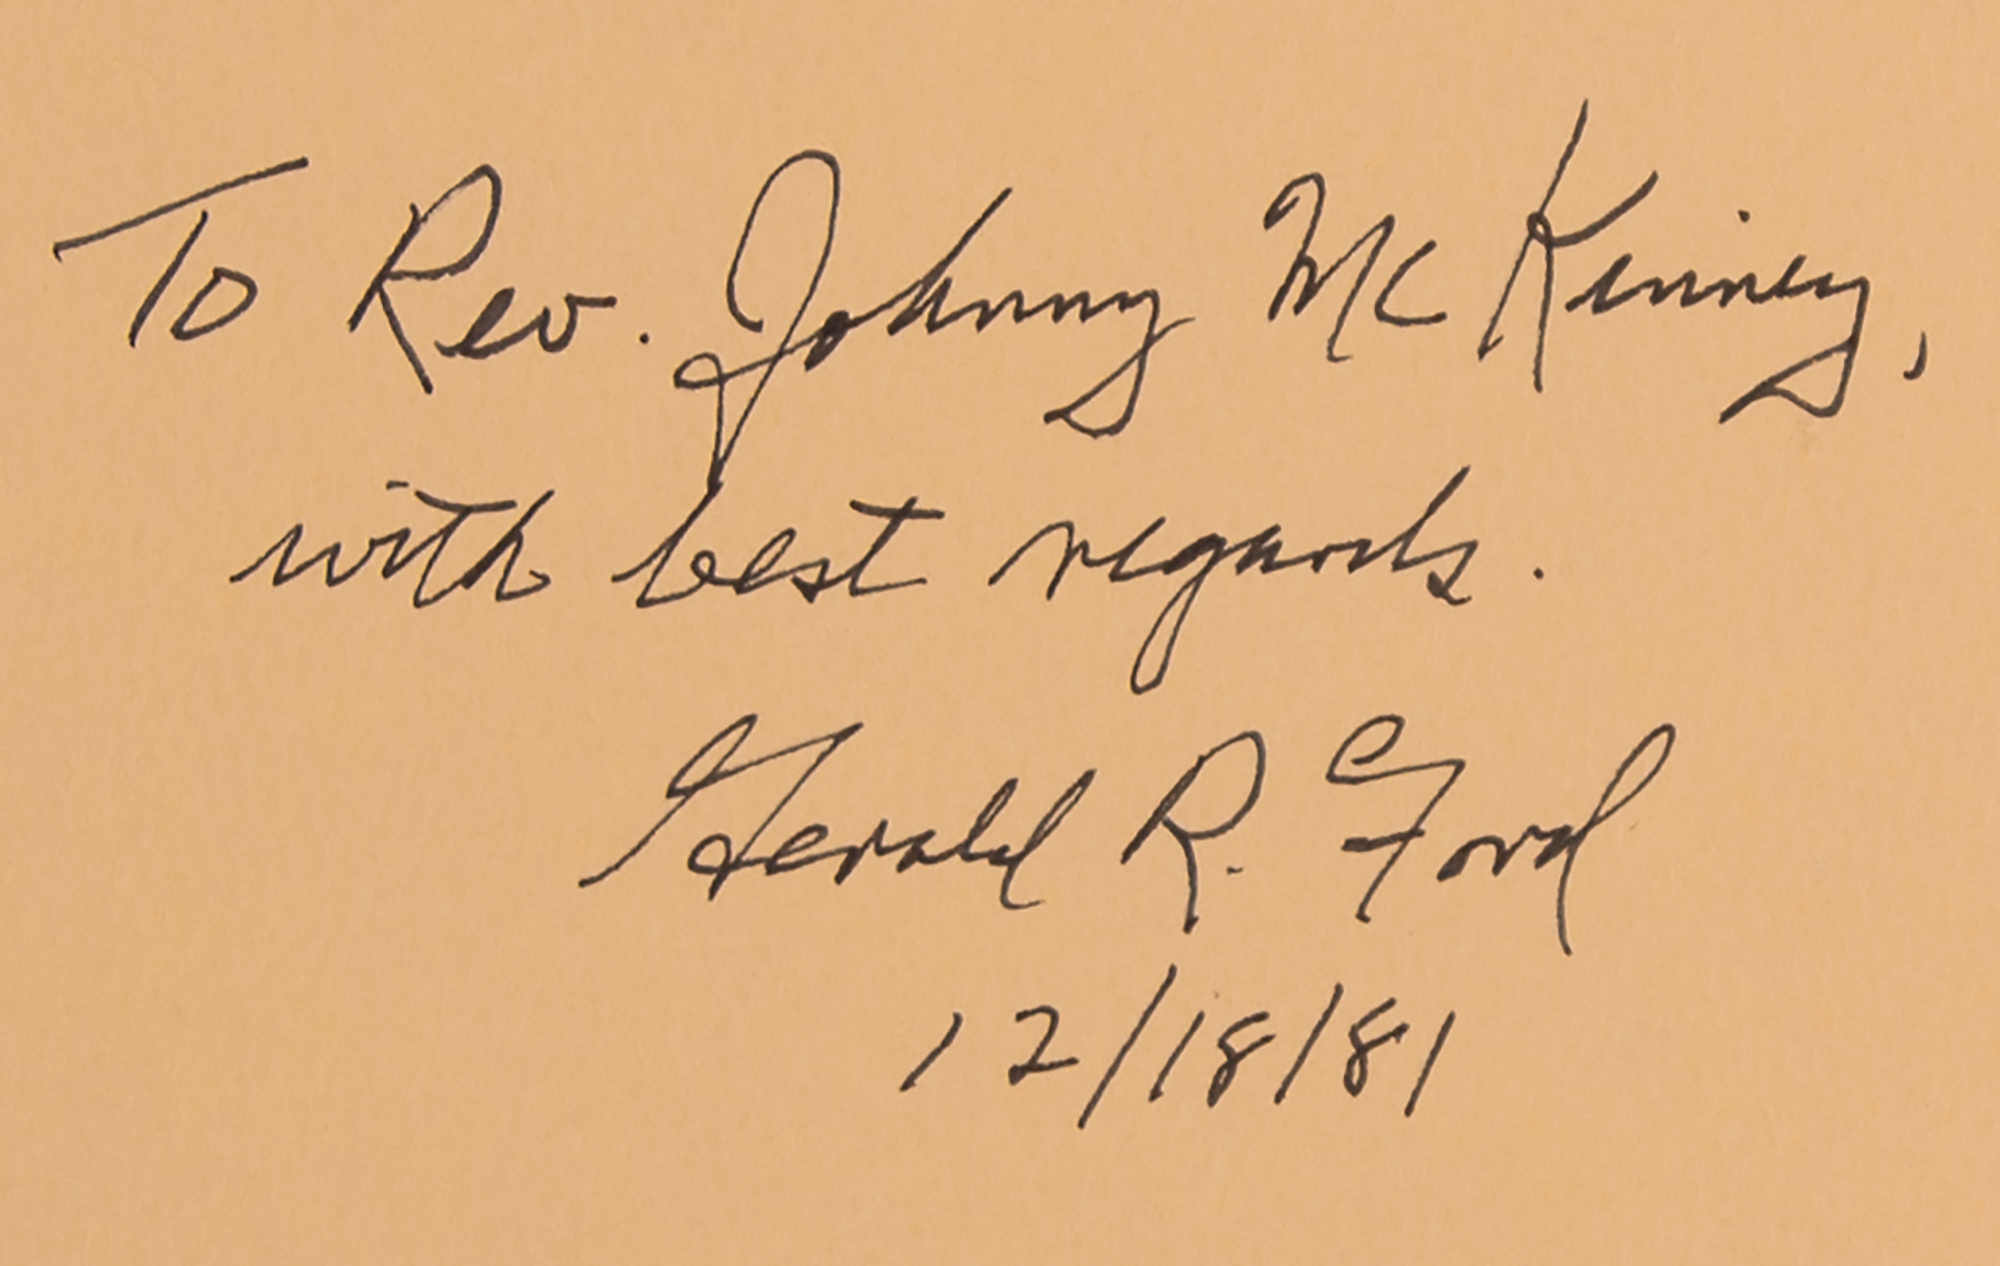 To Rev. Johnny McKinney,
with best regards.
Gerald R. Ford
12/18/81